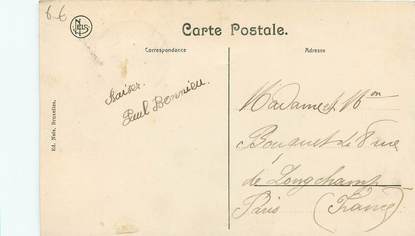 6-6
NELS
Carte Postale.
Correspondance
Adresse
Ed. Nels, Bruxelles.
Baiser.
Paul Bonnieu.
Madame et Mon
Bouquet de 8 rue
de Longchamp
Paris (France)